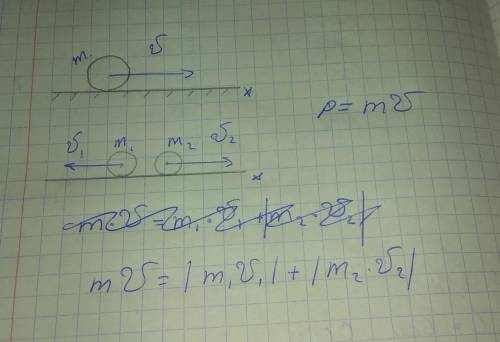 m. υ
x
p = mυ
υ₁ m₁ m₂ υ₂
x
mυ = |m₁υ₁| + |m₂·υ₂|